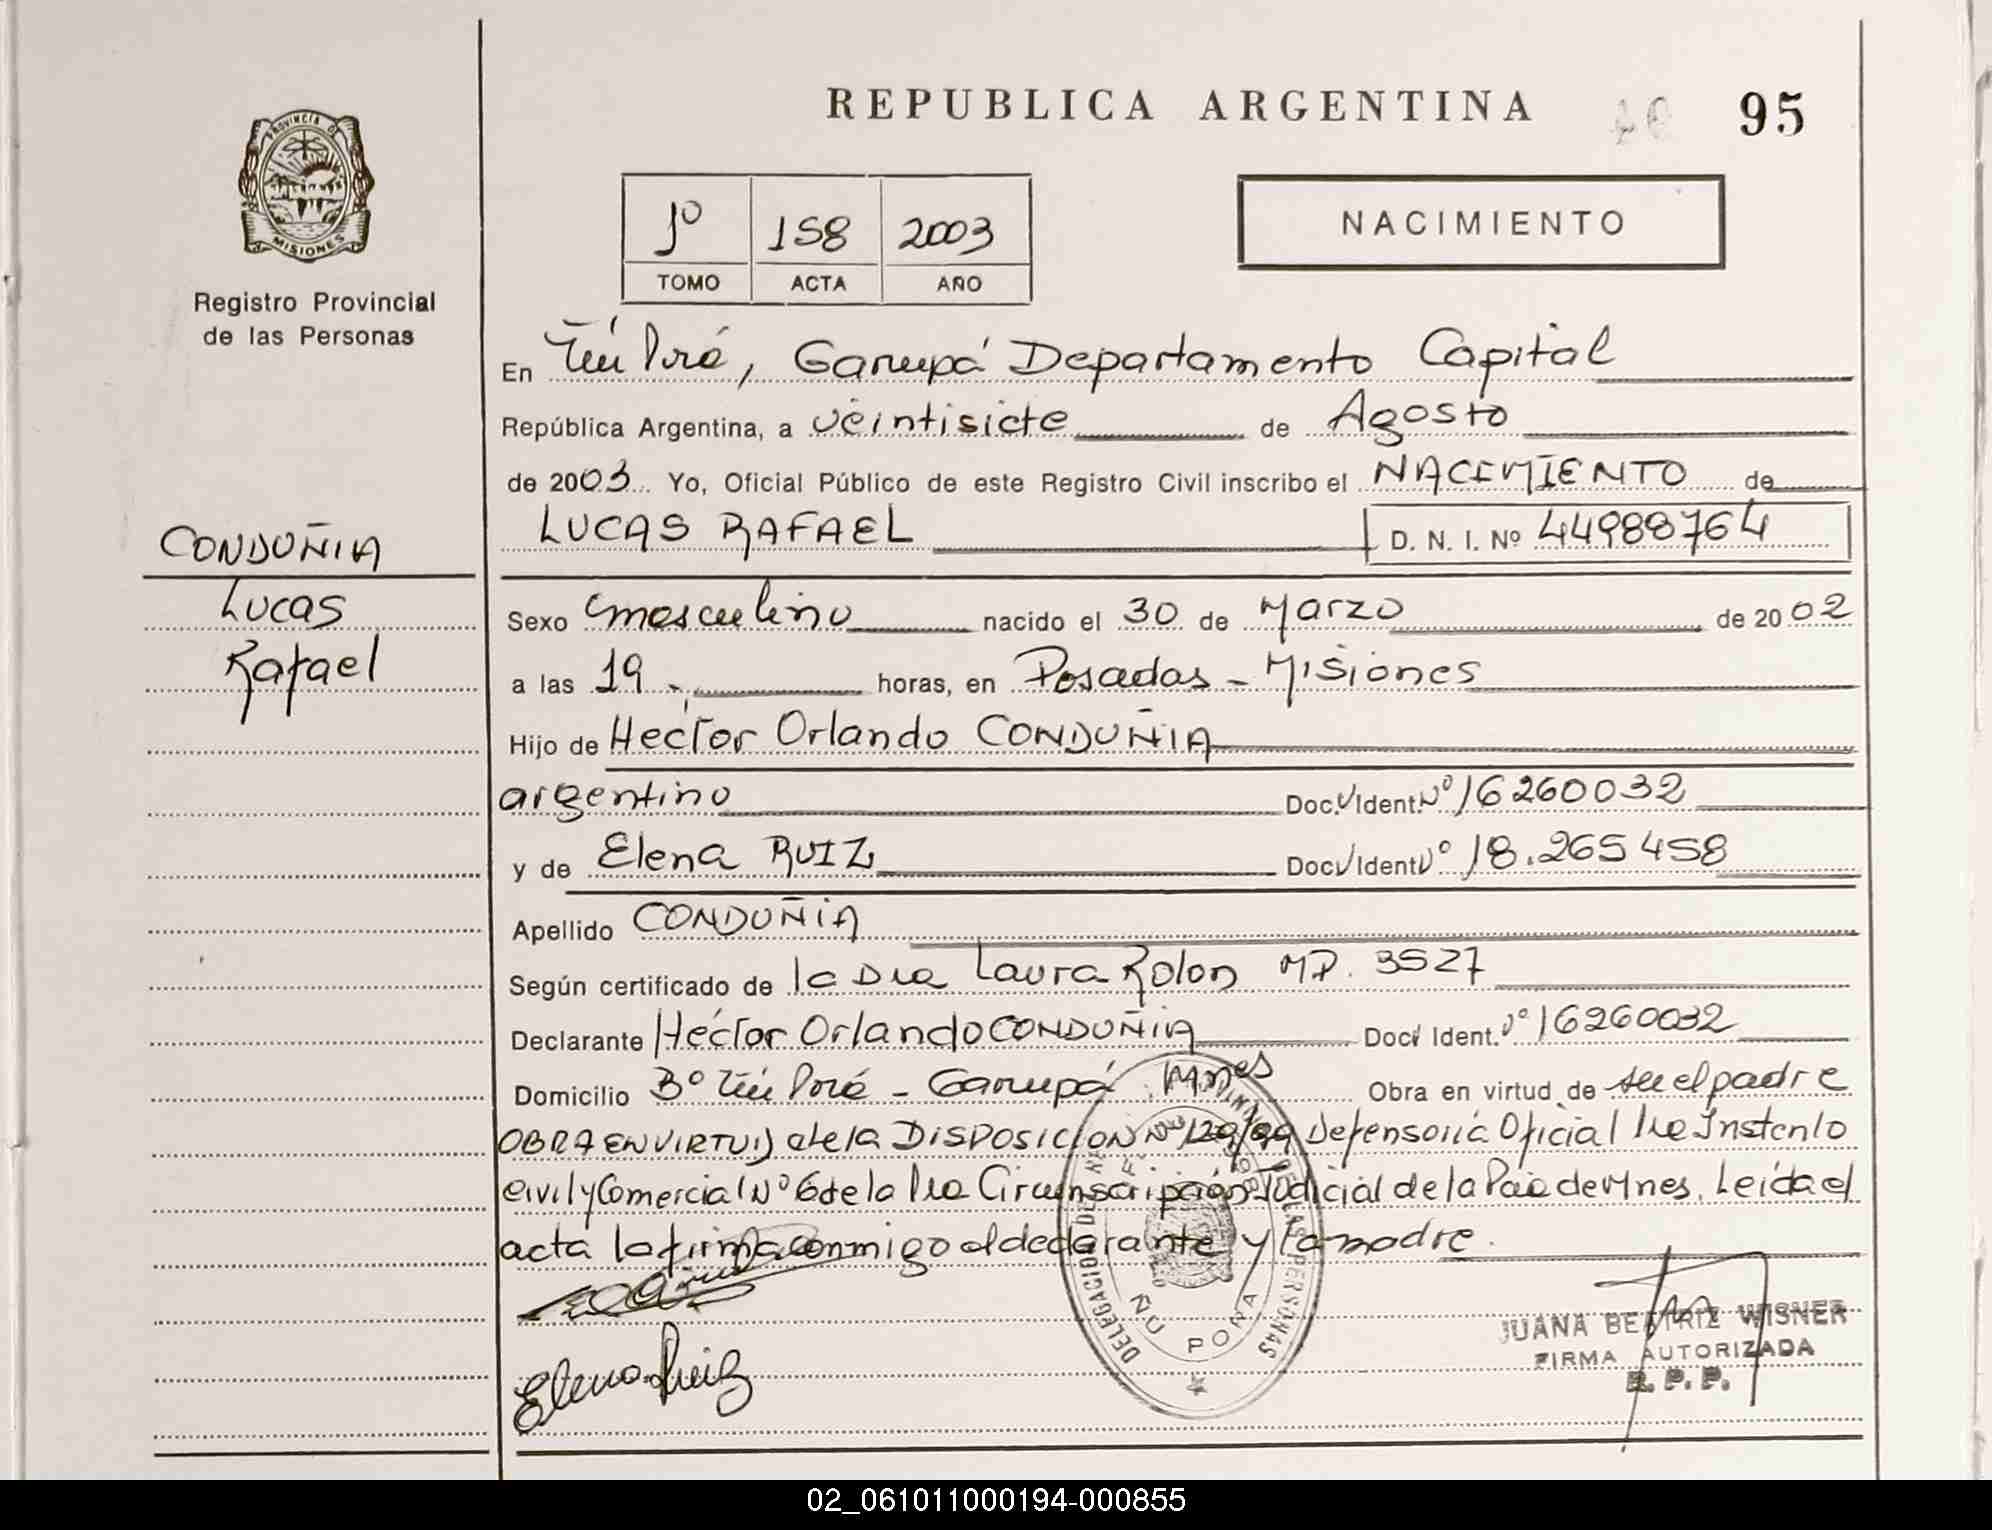 REPUBLICA ARGENTINA
95
PROVINCIA DE
MISIONES
Registro Provincial
de las Personas
1º 158 2003
TOMO ACTA AÑO
NACIMIENTO
En Ñu Porá, Garupá Departamento Capital
República Argentina, a veintisiete de Agosto
de 2003 Yo, Oficial Público de este Registro Civil inscribo el NACIMIENTO de
LUCAS RAFAEL D. N. I. Nº 44988764
CONDUÑIA
Lucas
Rafael
Sexo masculino nacido el 30 de Marzo de 2002
a las 19.- horas, en Posadas - Misiones
Hijo de Hector Orlando CONDUÑIA
argentino Doc. Ident. Nº 16260032
y de Elena RUIZ Doc. Ident. Nº 18.265458
Apellido CONDUÑIA
Según certificado de la Dra Laura Rolon MP. 3527
Declarante Héctor Orlando CONDUÑIA Doc. Ident. Nº 16260032
Domicilio Bº Ñu Porá - Garupá Mnes Obra en virtud de ser el padre
OBRA EN VIRTUD de la DISPOSICION Nº 129/99 Defensoria Oficial 1ra Instancia
civil y Comercial Nº 6 de la 1ra Circunscripción Judicial de la Pcia de Mnes. Leída el
acta la firma conmigo el declarante y la madre.
Elena Ruiz
DELEGACION DE REG. PROVINCIAL DE LAS PERSONAS
ÑU PORA
JUANA BEATRIZ WISNER
FIRMA AUTORIZADA
R. P. P.
02_061011000194-000855